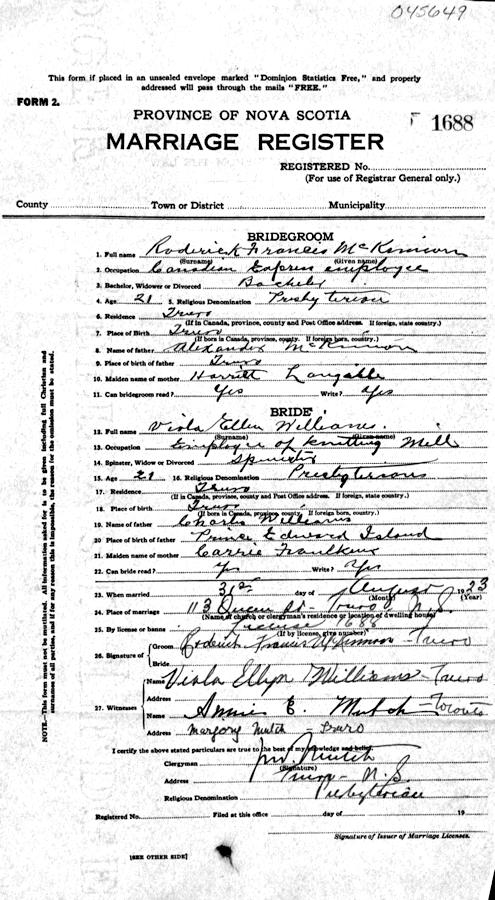 045649
This form if placed in an unsealed envelope marked "Dominion Statistics Free," and properly
addressed will pass through the mails "FREE."
FORM 2.
PROVINCE OF NOVA SCOTIA
F 1688
MARRIAGE REGISTER
REGISTERED No.
(For use of Registrar General only.)
County Town or District Municipality
BRIDEGROOM
1. Full name Roderick Francis McKinnon
(Surname) (Given name)
2. Occupation Canadian Express employee
3. Bachelor, Widower or Divorced Bachelor
4. Age 21 5. Religious Denomination Presbyterian
6. Residence Truro
(If in Canada, province, county and Post Office address. If foreign, state country.)
7. Place of Birth Truro
(If born in Canada, province, county. If foreign born, country.)
8. Name of father Alexander McKinnon
9. Place of birth of father Truro
10. Maiden name of mother Harriett Langille
11. Can bridegroom read? Yes Write? Yes
BRIDE
12. Full name Viola Ellen Williams
(Surname) (Given name)
13. Occupation Employee of Knitting Mill
14. Spinster, Widow or Divorced Spinster
15. Age 21 16. Religious Denomination Presbyterian
17. Residence Truro
(If in Canada, province, county and Post Office address. If foreign, state country.)
18. Place of Birth Truro
(If born in Canada, province, county. If foreign born, country.)
19. Name of father Charles Williams
20. Place of birth of father Prince Edward Island
21. Maiden name of mother Carrie Faulkner
22. Can bride read? Yes Write? Yes
23. When married 31st day of August 1923
(Month) (Year)
24. Place of marriage 113 Queen St - Truro N.S.
(Name of church or clergyman's residence or location of dwelling house)
25. By license or banns License 1688
(If by license, give number)
26. Signature of Groom Roderick Francis McKinnon - Truro
Bride
Name Viola Ellyn Williams - Truro
Address
27. Witnesses
Name Annie E. Mutch - Toronto
Address Marjory Mutch - Truro
I certify the above stated particulars are true to the best of my knowledge and belief.
Clergyman Mutch
(Signature)
Address Truro - N.S.
Religious Denomination Presbyterian
Registered No. Filed at this office day of 19
Signature of Issuer of Marriage Licenses.
[SEE OTHER SIDE]
NOTE.—This form must not be mutilated. All information asked for is to be given including full Christian and
surnames of all parties, and if for any reason this is impossible, the reason for the omission must be stated.